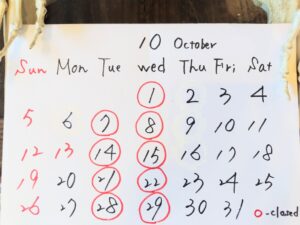 10 October
Sun Mon Tue wed Thu Fri Sat
1 2 3 4
5 6 7 8 9 10 11
12 13 14 15 16 17 18
19 20 21 22 23 24 25
26 27 28 29 30 31 o-closed